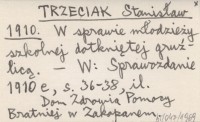 TRZECIAK Stanisław
1910. W sprawie młodzieży
szkolnej dotkniętej gruź-
licą. – W: Sprawozdanie
1910 r, s. 36-38, il.
Dom Zdrowia Pomocy
Bratniej w Zakopanem